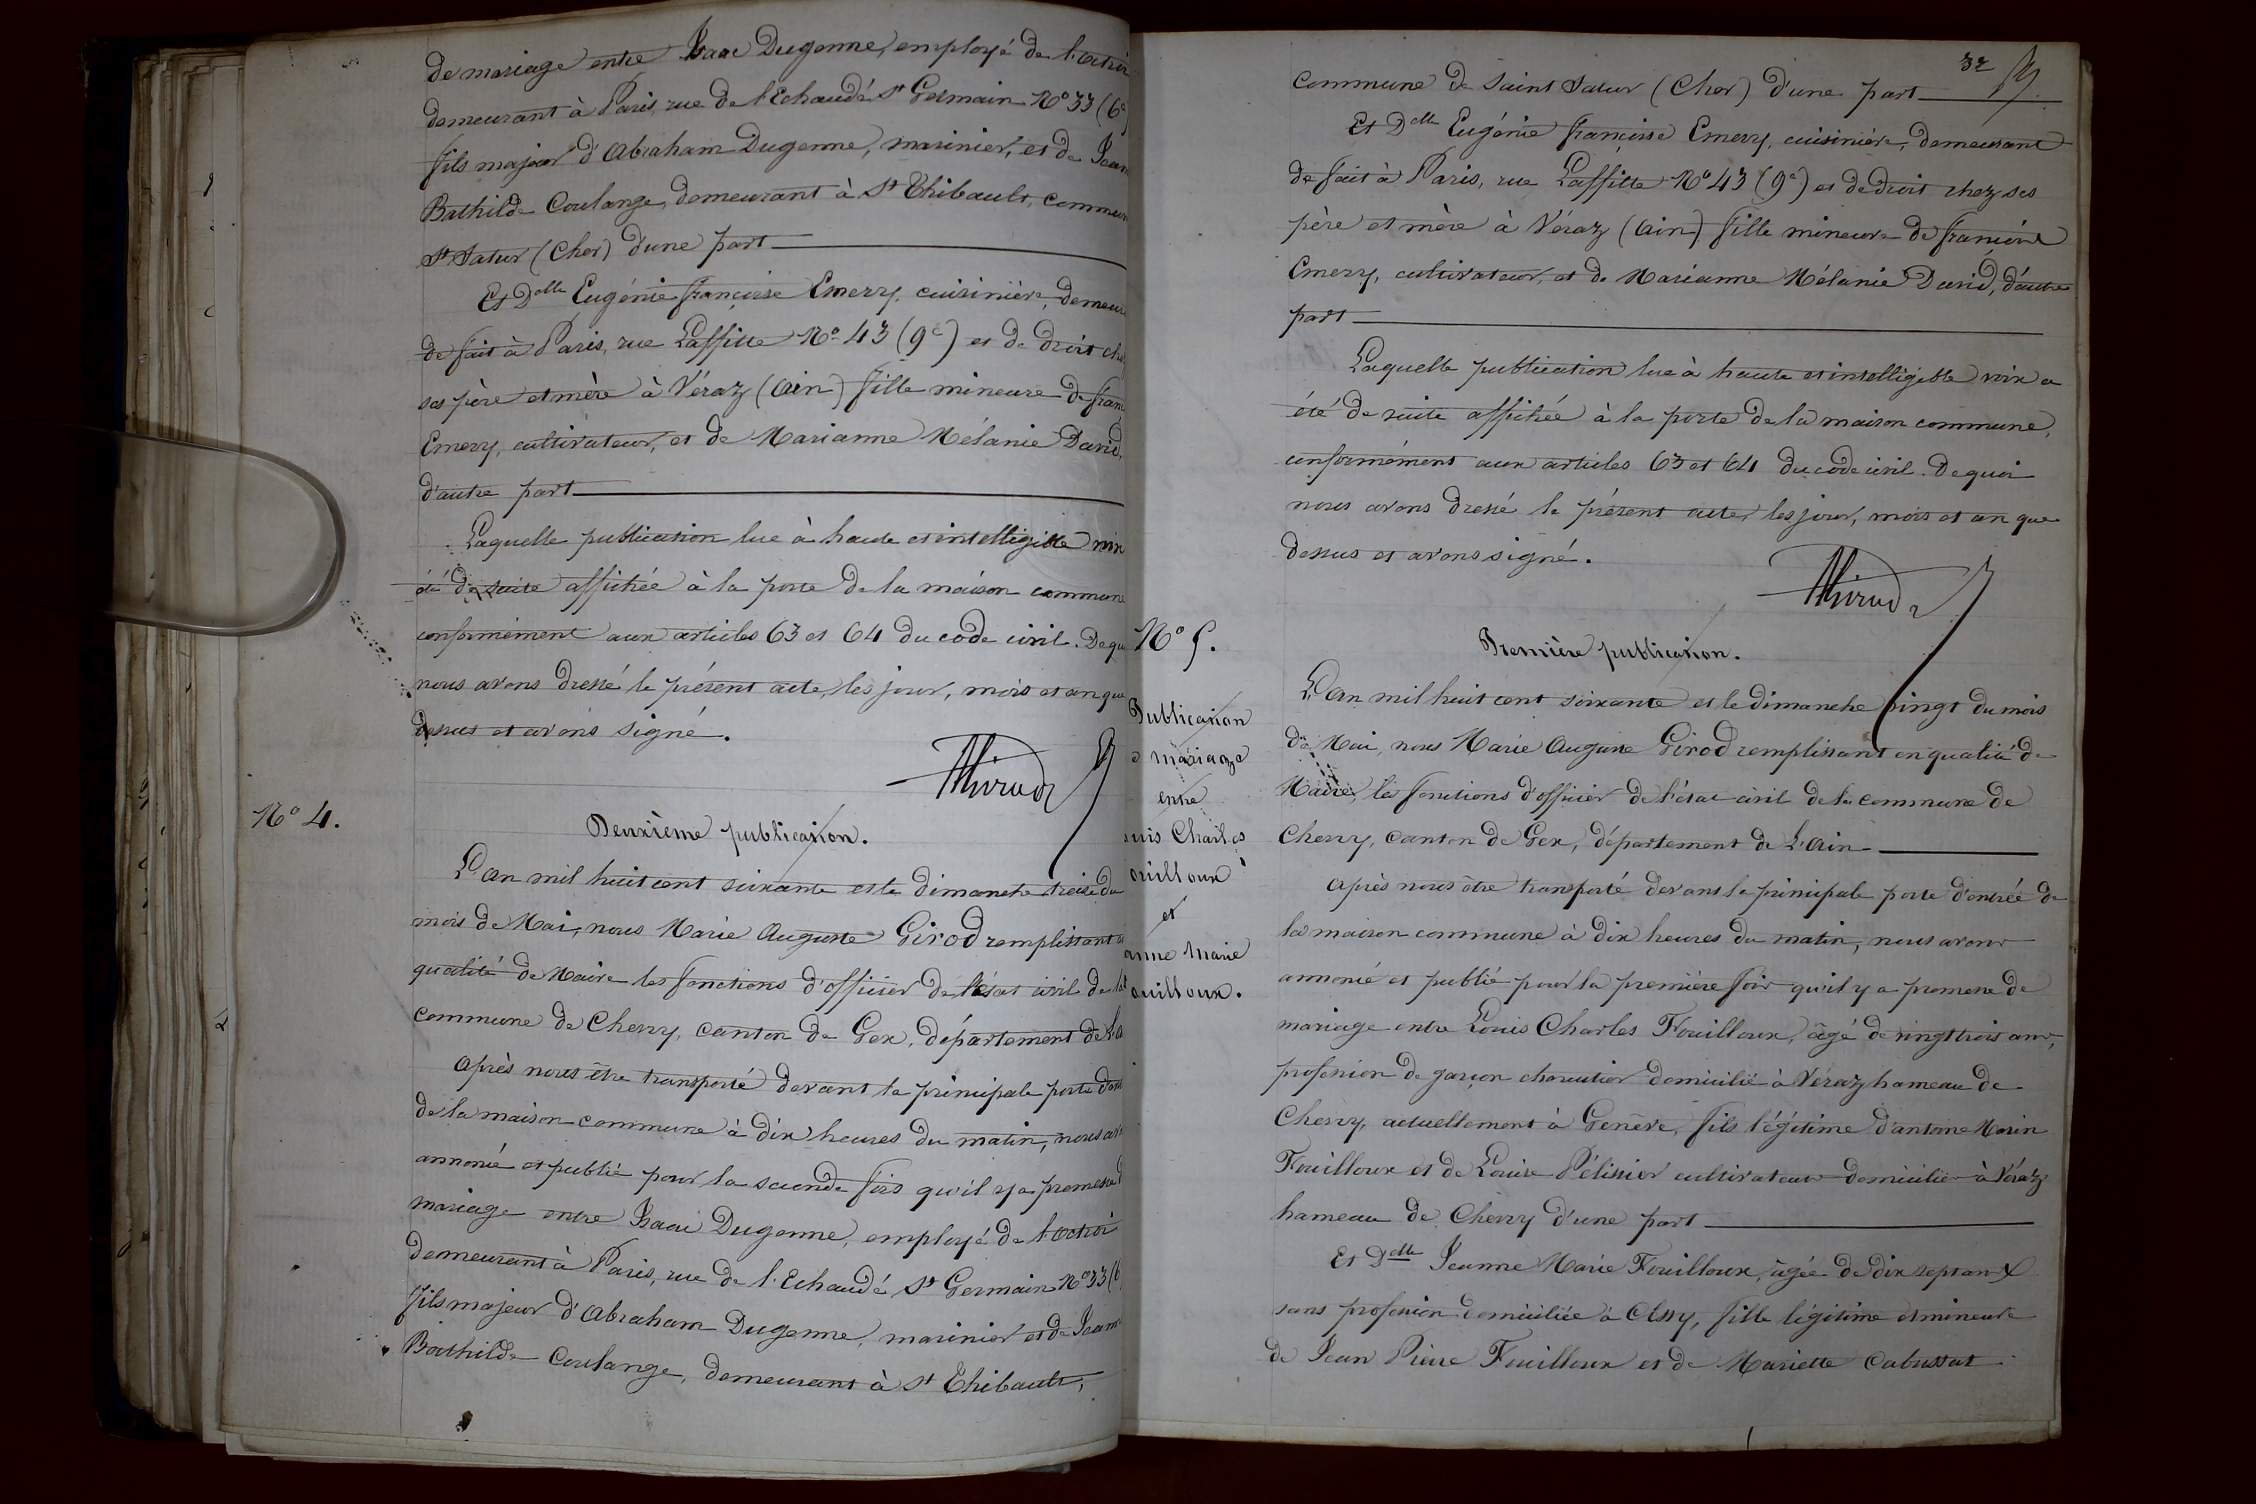 de mariage entre Isaac Dugenne, employé de l'octroi
demeurant à Paris, rue de l'Echaudé St Germain No 33 (6e
fils majeur d'Abraham Dugenne, marinier, et de Jean
Bathilde Coulange, demeurant à St Thibault, commun
St Satur (Cher) d'une part
Et Delle Eugénie françoise Emery, cuisinière, demeur
de fait à Paris, rue Laffitte No 43 (9e) et de droit ch
ses père et mère à Véraz (Ain) fille mineure de fran
Emery, cultivateur, et de Marianne Mélanie David,
d'autre part
Laquelle publication lue à haute et intelligible voix
été de suite affichée à la porte de la maison commune
conformément aux articles 63 et 64 du code civil. De qu
nous avons dressé le présent acte, les jour, mois et an que
dessus et avons signé.
No 4.
Deuxième publication.
L'an mil huit cent soixante et le dimanche treize du
mois de Mai, nous Marie Auguste Girod remplissant
qualité de Maire les fonctions d'officier de l'état civil de la
commune de Chevry, canton de Gex, département de l'a
après nous être transporté devant la principale porte d'en
de la maison commune à dix heures du matin, nous av
annoncé et publié pour la seconde fois qu'il y a promesse d
mariage entre Isaac Dugenne, employé de l'octroi
demeurant à Paris, rue de l'Echaudé St Germain No 33 (6
fils majeur d'Abraham Dugenne, marinier et de Jeanne
Bathilde Coulange, demeurant à St Thibault,
32
commune de Saint Satur (Cher) d'une part
Et Delle Eugénie françoise Emery, cuisinière, demeurant
de fait à Paris, rue Laffitte No 43 (9e) et de droit chez ses
père et mère à Véraz (Ain) fille mineure de
Emery, cultivateur, et de Marianne Mélanie David, d'autre
part
Laquelle publication lue à haute et intelligible voix a
été de suite affichée à la porte de la maison commune,
conformément aux articles 63 et 64 du code civil. De quoi
nous avons dressé le présent acte, les jour, mois et an que
dessus et avons signé.
No 5.
Publication
e mariage
entre
ouis Charles
ouilloux
et
anne Marie
ouilloux.
Première publication.
L'an mil huit cent soixante et le dimanche vingt du mois
de Mai, nous Marie Auguste Girod remplissant en qualité de
Maire, les fonctions d'officier de l'état civil de la commune de
Chevry, canton de Gex, département de L'Ain
après nous être transporté devant la principale porte d'entrée de
la maison commune à dix heures du matin, nous avons
annoncé et publié pour la première fois qu'il y a promesse de
mariage entre Louis Charles Fouilloux, âgé de vingt trois ans,
profession de garçon charcutier domicilié à Véraz hameau de
Chevry, actuellement à Genève, fils légitime d'antoine Marin
Fouilloux et de Louise Pélissier cultivateurs domiciliés à Véraz
hameau de Chevry d'une part
Et Delle Jeanne Marie Fouilloux, âgée de dix sept ans
sans profession domiciliée à fille légitime et mineure
de Jean Pierre Fouilloux et de Mariette Cabussat